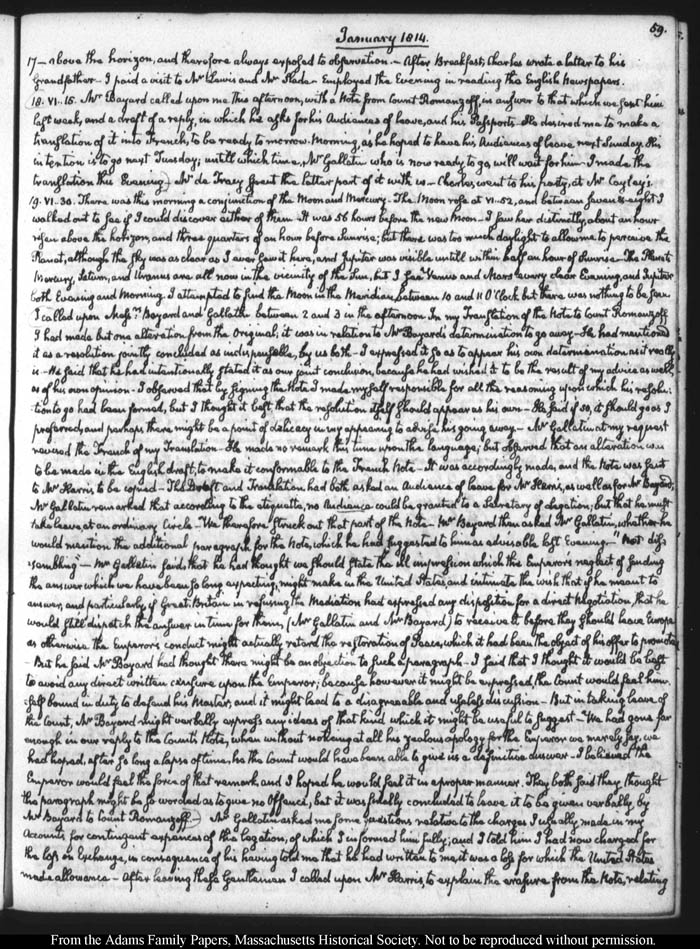 59.
January 1814.
17— above the horizon, and therefore always exposed to observation.— After Breakfast, Charles wrote a letter to his
Grandfather— I paid a visit to Mr Lewis and Mr Slade— Employed the Evening in reading the English Newspapers.
18. VI..15. Mr Bayard called upon me this afternoon, with a Note from Count Romanzoff, in answer to that which we sent him
last week, and a draft of a reply, in which he asks for his Audiences of leave, and his Passports. He desired me to make a
translation of it into French, to be ready to morrow Morning, as he hoped to have his Audiences of leave next Sunday. His
intention is to go next Tuesday; untill which time, Mr Gallatin who is now ready to go, will wait for him— I made the
translation this Evening. Mr de Tracy spent the latter part of it with us— Charles went to his party, at Mr Cayley's.
19. VI-30. There was this morning a conjunction of the Moon and Mercury. The Moon rose at VI-52, and between seven & eight I
walked out to see if I could discover either of them. It was 56 hours before the new Moon— I saw her distinctly, about an hour
risen above the horizon, and three quarters of an hour before Sunrise; but there was too much daylight to allow me to perceive the
Planet, although the sky was as clear as I ever saw it here, and Jupiter was visible untill within half an hour of Sunrise— The Planets
Mercury, Saturn, and Uranus are all now in the vicinity of the Sun, but I see Venus and Mars every clear Evening, and Jupiter
both Evening and Morning. I attempted to find the Moon in the Meridian, between 10 and 11 O'Clock but there was nothing to be seen.
I called upon Messrs Bayard and Gallatin between 2 and 3 in the afternoon. In my Translation of the Note to Count Romanzoff
I had made but one alteration from the Original; it was in relation to Mr Bayard's determination to go away— He had mentioned
it as a resolution jointly concluded as indispensable, by us both— I expressed it so as to appear his own determination as it really
is— He said that he had intentionally stated it as our joint conclusion, because he had wished it to be the result of my advice as well
as of his own opinion— I observed that by signing the Note I made myself responsible for all the reasoning upon which his resolu-
tion to go had been formed, but I thought it best that the resolution itself should appear as his own— He said if so, it should go as I
preferred, and perhaps there might be a point of delicacy in my appearing to advise his going away— Mr Gallatin at my request
revised the French of my Translation— He made no remark this time upon the language; but observed that an alteration was
to be made in the English draft, to make it conformable to the French Note— It was accordingly made, and the Note was sent
to Mr Harris, to be copied— The Draft and Translation had both asked an Audience of leave for Mr Harris, as well as for Mr Bayard;
Mr Gallatin remarked that according to the etiquette, no Audience could be granted to a Secretary of Legation, but that he must
take leave, at an ordinary Circle— We therefore struck out that part of the Note. Mr Bayard then asked Mr Gallatin, whether he
would mention the additional paragraph for the Note, which he had suggested to him as advisable last Evening— "Not dis-
sembling"— Mr Gallatin said, that he had thought we should state the ill impression which the Emperor's neglect of sending
the answer which we have been so long expecting, might make in the United States, and intimate the wish that if he meant to
answer, and particularly if Great Britain in refusing the Mediation had expressed any disposition for a direct Negotiation, that he
would still dispatch the answer in time for them, (Mr Gallatin and Mr Bayard) to receive it before they should leave Europe
as otherwise the Emperor's conduct might actually retard the restoration of Peace, which it had been the object of his offer to promote
— But he said Mr Bayard had thought there might be an objection to such a paragraph— I said that I thought it would be best
to avoid any direct written censure upon the Emperor; because however it might be expressed, the Count would feel him-
self bound in duty to defend his Master, and it might lead to a disagreeable and useless discussion— But in taking leave of
the Count, Mr Bayard might verbally express any ideas of that kind which it might be useful to suggest.— We had gone far
enough in our reply to the Count's Note, when without noticing at all his zealous apology for the Emperor we merely say, we
had hoped, after so long a lapse of time, he the Count would have been able to give us a definitive answer— I believed the
Emperor would feel the force of that remark, and I hoped he would feel it in a proper manner. They both said they thought
the paragraph might be so worded as to give no Offence, but it was finally concluded to leave it to be given verbally, by
Mr Bayard to Count Romanzoff.— Mr Gallatin asked me some questions relative to the charges I usually made in my
Accounts for contingent expences of the Legation, of which I informed him fully; and I told him I had now charged for
the loss on Exchange, in consequence of his having told me that he had written to me it was a loss for which the United States
made allowance— After leaving these Gentlemen I called upon Mr Harris, to explain the erasure from the Note, relating
From the Adams Family Papers, Massachusetts Historical Society. Not to be reproduced without permission.